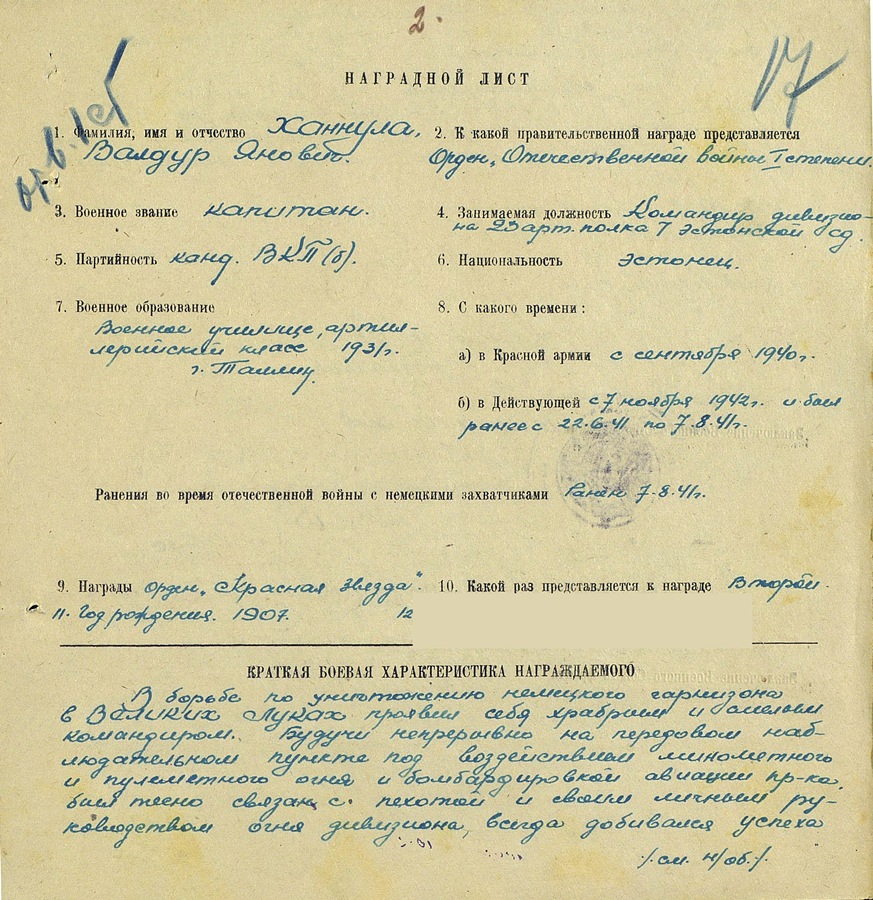 2.
орв. 1 ст
17
НАГРАДНОЙ ЛИСТ
1. Фамилия, имя и отчество Ханнула,
Валдур Янович.
2. К какой правительственной награде представляется
Орден „Отечественной войны I степени
3. Военное звание капитан.
4. Занимаемая должность Командир дивизио-
на 23 арт. полка 7 эстонской сд.
5. Партийность канд. ВКП(б).
6. Национальность эстонец.
7. Военное образование
Военное училище, артил-
лерийский класс 1931г.
г. Таллин
8. С какого времени:
а) в Красной армии с сентября 1940г.
б) в Действующей с 7 ноября 1942г. и был
ранее с 22.6.41 по 7.8.41г.
Ранения во время отечественной войны с немецкими захватчиками Ранен 7.8.41г.
9. Награды орден „Красная Звезда".
10. Какой раз представляется к награде Второй.
11. Год рождения. 1907. 12
КРАТКАЯ БОЕВАЯ ХАРАКТЕРИСТИКА НАГРАЖДАЕМОГО
В борьбе по уничтожению немецкого гарнизона
в Великих Луках проявил себя храбрым и смелым
командиром. Будучи непрерывно на передовом наб-
людательном пункте под воздействием минометного
и пулеметного огня и бомбардировкой авиации пр-ка,
был тесно связан с пехотой и своим личным ру-
ководством огня дивизиона, всегда добивался успеха
/см. н/об./.